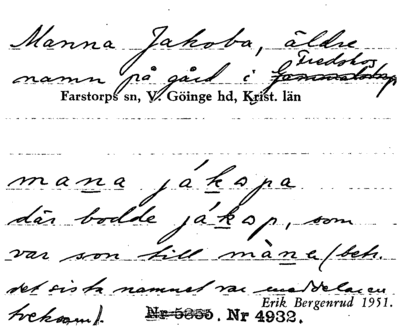 Manna Jakoba, äldre
namn på gård i Fredskog
Farstorps sn, V. Göinge hd, Krist. län
mana jákopa
där bodde ják p, som
var son till màna (betr.
det sista namnet var meddelaren
tveksam).
Erik Bergenrud 1951.
Nr 5255. Nr 4932.